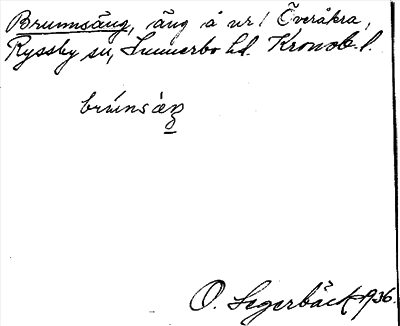 Brunnsäng, äng å nr 1 Överåkra,
Ryssby sn, Sunnerbo hd. Kronob. l.
brúnsæ̀ŋ
O. Segerbäck 1936.